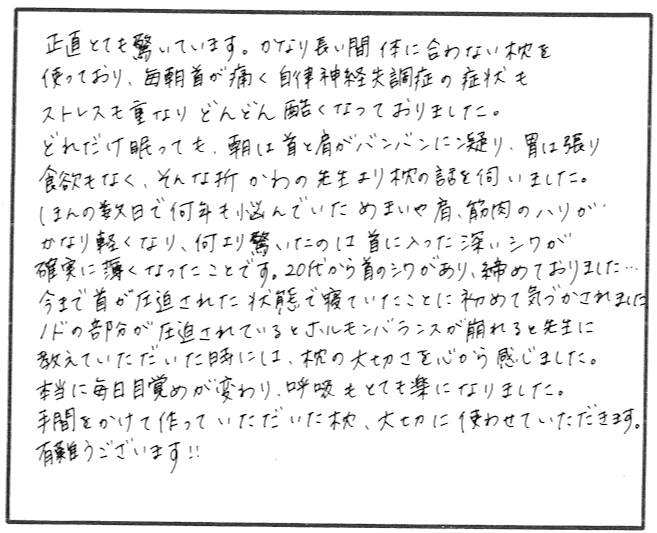 正直とても驚いています。かなり長い間 体に合わない枕を
使っており、毎朝首が痛く自律神経失調症の症状も
ストレスも重なり どんどん酷くなっておりました。
どれだけ眠っても、朝は首と肩がバンバンに凝り、胃は張り
食欲もなく、そんな折 かわの先生より枕の話を伺いました。
ほんの数日で何年も悩んでいためまいや肩、筋肉のハリが
かなり軽くなり、何より驚いたのは首に入った深いシワが
確実に薄くなったことです。20代から首のシワがあり、締めておりました…
今まで首が圧迫された状態で寝ていたことに初めて気づかされました
ノドの部分が圧迫されているとホルモンバランスが崩れると先生に
教えていただいた時には、枕の大切さを心から感じました。
本当に毎日目覚めが変わり、呼吸もとても楽になりました。
手間をかけて作っていただいた枕、大切に使わせていただきます。
有難うございます!!